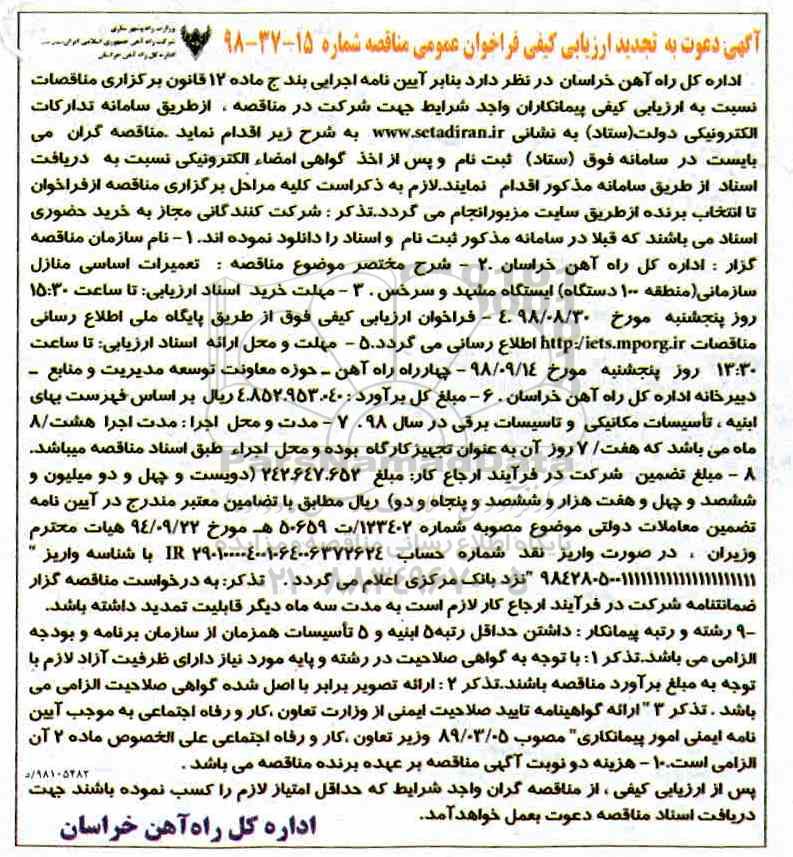 وزارت راه و شهرسازی
شرکت راه آهن جمهوری اسلامی ایران
اداره کل راه آهن خراسان
آگهی: دعوت به تجدید ارزیابی کیفی فراخوان عمومی مناقصه شماره ۱۵-۳۷-۹۸
اداره کل راه آهن خراسان در نظر دارد بنابر آیین نامه اجرایی بند ج ماده ۱۲ قانون برگزاری مناقصات
نسبت به ارزیابی کیفی پیمانکاران واجد شرایط جهت شرکت در مناقصه ، ازطریق سامانه تدارکات
الکترونیکی دولت(ستاد) به نشانی www.setadiran.ir به شرح زیر اقدام نماید .مناقصه گران می
بایست در سامانه فوق (ستاد) ثبت نام و پس از اخذ گواهی امضاء الکترونیکی نسبت به دریافت
اسناد از طریق سامانه مذکور اقدام نمایند.لازم به ذکراست کلیه مراحل برگزاری مناقصه ازفراخوان
تا انتخاب برنده ازطریق سایت مزبورانجام می گردد.تذکر : شرکت کنندگانی مجاز به خرید حضوری
اسناد می باشند که قبلا در سامانه مذکور ثبت نام و اسناد را دانلود نموده اند. ۱- نام سازمان مناقصه
گزار : اداره کل راه آهن خراسان .۲ - شرح مختصر موضوع مناقصه : تعمیرات اساسی منازل
سازمانی(منطقه ۱۰۰ دستگاه) ایستگاه مشهد و سرخس . ۳ - مهلت خرید اسناد ارزیابی: تا ساعت ۱۵:۳۰
روز پنجشنبه مورخ ۹۸/۰۸/۳۰ .۴ - فراخوان ارزیابی کیفی فوق از طریق پایگاه ملی اطلاع رسانی
مناقصات http:/iets.mporg.ir اطلاع رسانی می گردد.۵ - مهلت و محل ارائه اسناد ارزیابی: تا ساعت
۱۳:۳۰ روز پنجشنبه مورخ ۹۸/۰۹/۱۴ - چهارراه راه آهن ـ حوزه معاونت توسعه مدیریت و منابع ـ
دبیرخانه اداره کل راه آهن خراسان . ۶ - مبلغ کل برآورد : ۴.۸۵۲.۹۵۳.۰۴۰ ریال بر اساس فهرست بهای
ابنیه ، تأسیسات مکانیکی و تاسیسات برقی در سال ۹۸. ۷ - مدت و محل اجرا : مدت اجرا هشت/۸
ماه می باشد که هفت/ ۷ روز آن به عنوان تجهیز کارگاه بوده و محل اجراء طبق اسناد مناقصه میباشد.
۸ - مبلغ تضمین شرکت در فرآیند ارجاع کار: مبلغ ۲۴۲.۶۴۷.۶۵۲ (دویست و چهل و دو میلیون و
ششصد و چهل و هفت هزار و ششصد و پنجاه و دو) ریال مطابق با تضامین معتبر مندرج در آیین نامه
تضمین معاملات دولتی موضوع مصوبه شماره ۱۲۳۴۰۲/ت ۵۰۶۵۹ هـ مورخ ۹۴/۰۹/۲۲ هیات محترم
وزیران ، در صورت واریز نقد شماره حساب IR با شناسه واریز "
"نزد بانک مرکزی اعلام می گردد . تذکر: به درخواست مناقصه گزار
ضمانتنامه شرکت در فرآیند ارجاع کار لازم است به مدت سه ماه دیگر قابلیت تمدید داشته باشد.
-۹ رشته و رتبه پیمانکار : داشتن حداقل رتبه۵ ابنیه و ۵ تأسیسات همزمان از سازمان برنامه و بودجه
الزامی می باشد.تذکر ۱: با توجه به گواهی صلاحیت در رشته و پایه مورد نیاز دارای ظرفیت آزاد لازم با
توجه به مبلغ برآورد مناقصه باشند.تذکر ۲ : ارائه تصویر برابر با اصل شده گواهی صلاحیت الزامی می
باشد . تذکر ۳ " ارائه گواهینامه تایید صلاحیت ایمنی از وزارت تعاون ،کار و رفاه اجتماعی به موجب آیین
نامه ایمنی امور پیمانکاری" مصوب ۸۹/۰۳/۰۵ وزیر تعاون ،کار و رفاه اجتماعی علی الخصوص ماده ۲ آن
الزامی است.۱۰ - هزینه دو نوبت آگهی مناقصه بر عهده برنده مناقصه می باشد .
۹۸۱۰۵۴۸۲/د
پس از ارزیابی کیفی ، از مناقصه گران واجد شرایط که حداقل امتیاز لازم را کسب نموده باشند جهت
دریافت اسناد مناقصه دعوت بعمل خواهدآمد.
اداره کل راه‌آهن خراسان
ParsNamadData
پایگاه اطلاع رسانی مناقصه و مزایده
۰۲۱-۸۸۳۴۹۶۷۰-۵